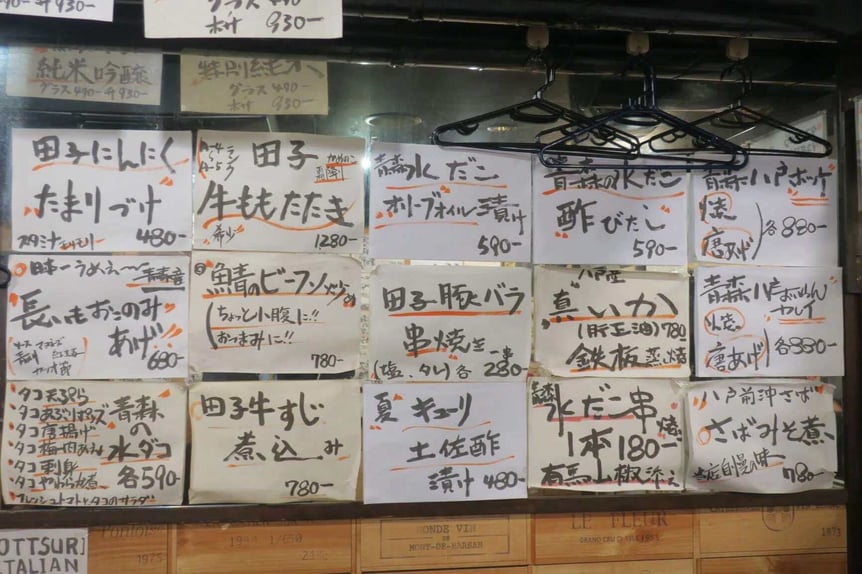 グラス490-
升930-
ボトル930-
純米吟醸
グラス490- 升930-
特別純米
グラス490-
930-
田子にんにく
たまりづけ
480-
A-4
A-5
ランク
田子
牛ももたたき
希少
1280-
青森水だこ
オリーブオイル漬け
590-
青森の水だこ
酢びたし
590-
青森八戸ホッケ
焼
唐あげ
各880-
日本一うめぇ〜
青森産
長いもおこのみ
あげ
680-
鯖のビーフン炒め
(ちょっと小腹に!!
おつまみに!!
780-
田子豚バラ
串焼き
一串
(塩、タレ)各280-
八戸産
真いか
(肝正油)780
鉄板蒸焼
青森八戸
カレイ
焼
唐あげ
各880-
タコ天ぷら
タコ唐揚げ
タコ梅肉あえ
タコ刺身
タコやわらか煮
フレッシュトマトとタコのサラダ
青森
の
水ダコ
各590-
田子牛すじ
煮込み
780-
夏 キューリ
土佐酢
漬け 480-
青森
水だこ串焼
1本180-
有馬山椒添え
八戸前沖さば
さばみそ煮
当店自慢の味
780-
OTTSURI
ITALIAN
Pontoise
1975
1944 1/650
24Kg
MONDE VIN
DE
MONT-DE-MARSAN
LE FLEUR
GRAND CRU CLASSÉ 1955
1973